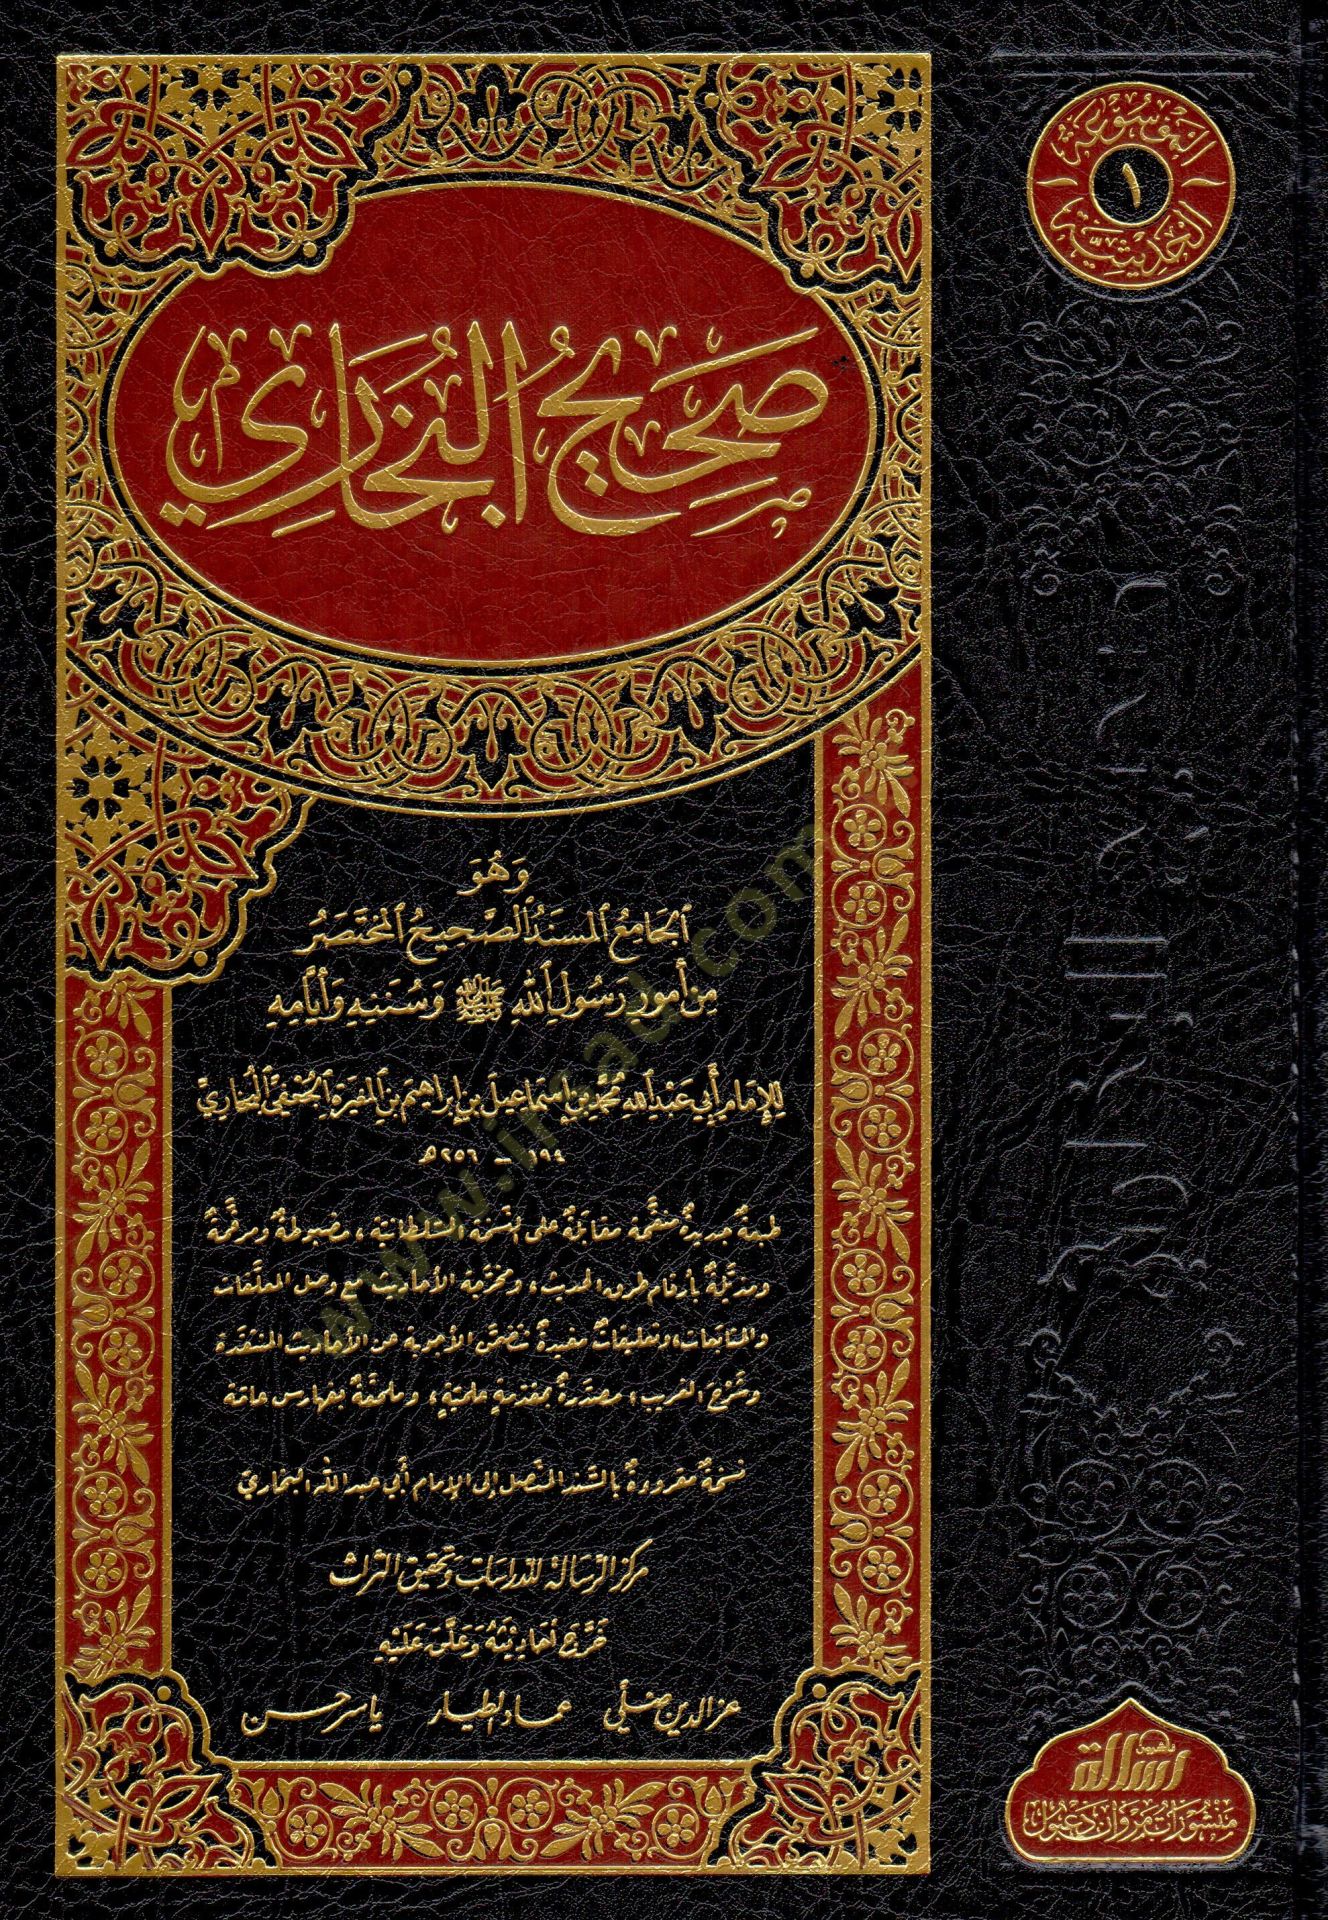 صَحِيحُ البُخَارِي
وَهُوَ
الجَامِعُ المُسنَدُ الصَّحِيحُ المُختَصَرُ
مِن أُمورِ رَسُولِ اللهِ ﷺ وَسُنَنِهِ وَأَيَّامِهِ
لِلإِمَامِ أَبِي عَبْدِ اللهِ مُحَمَّدِ بنِ إِسمَاعِيلَ بنِ إِبراهِيمَ بنِ المُغِيرَةِ الجُعفيِّ البُخاريِّ
١٩٤ - ٢٥٦هـ
طبعةٌ جديدةٌ منقَّحة مقابَلةٌ على النُّسخة السُّلطانيّة، مضبوطةٌ ومرقَّمةٌ
ومذيَّلةٌ بأرقام طرق الحديث، ومخرَّجة الأحاديث مع وصل المعلَّقات
والمتابعات، وتعليقاتٌ مفيدةٌ تتضمّن الأجوبة عن الأحاديث المنتقدة
وشرح الغريب، مصدَّرةٌ بمقدّمةٍ علميّةٍ، وملحقةٌ بفهارس عامّة
نسخةٌ مقروءةٌ بالسَّند المتَّصل إلى الإمام أبي عبد الله البخاريّ
مركز الرسالة للدراسات وتحقيق التراث
خَرَّج أحاديثَهُ وَعَلَّقَ عَلَيْهِ
عز الدين ضلّي عماد الطيار ياسر حسن
الموسوعة
١
الحديثية
صحيح البخاري
ناشرون
الرسالة
منشورات مروان دعبول
www.irsad.com